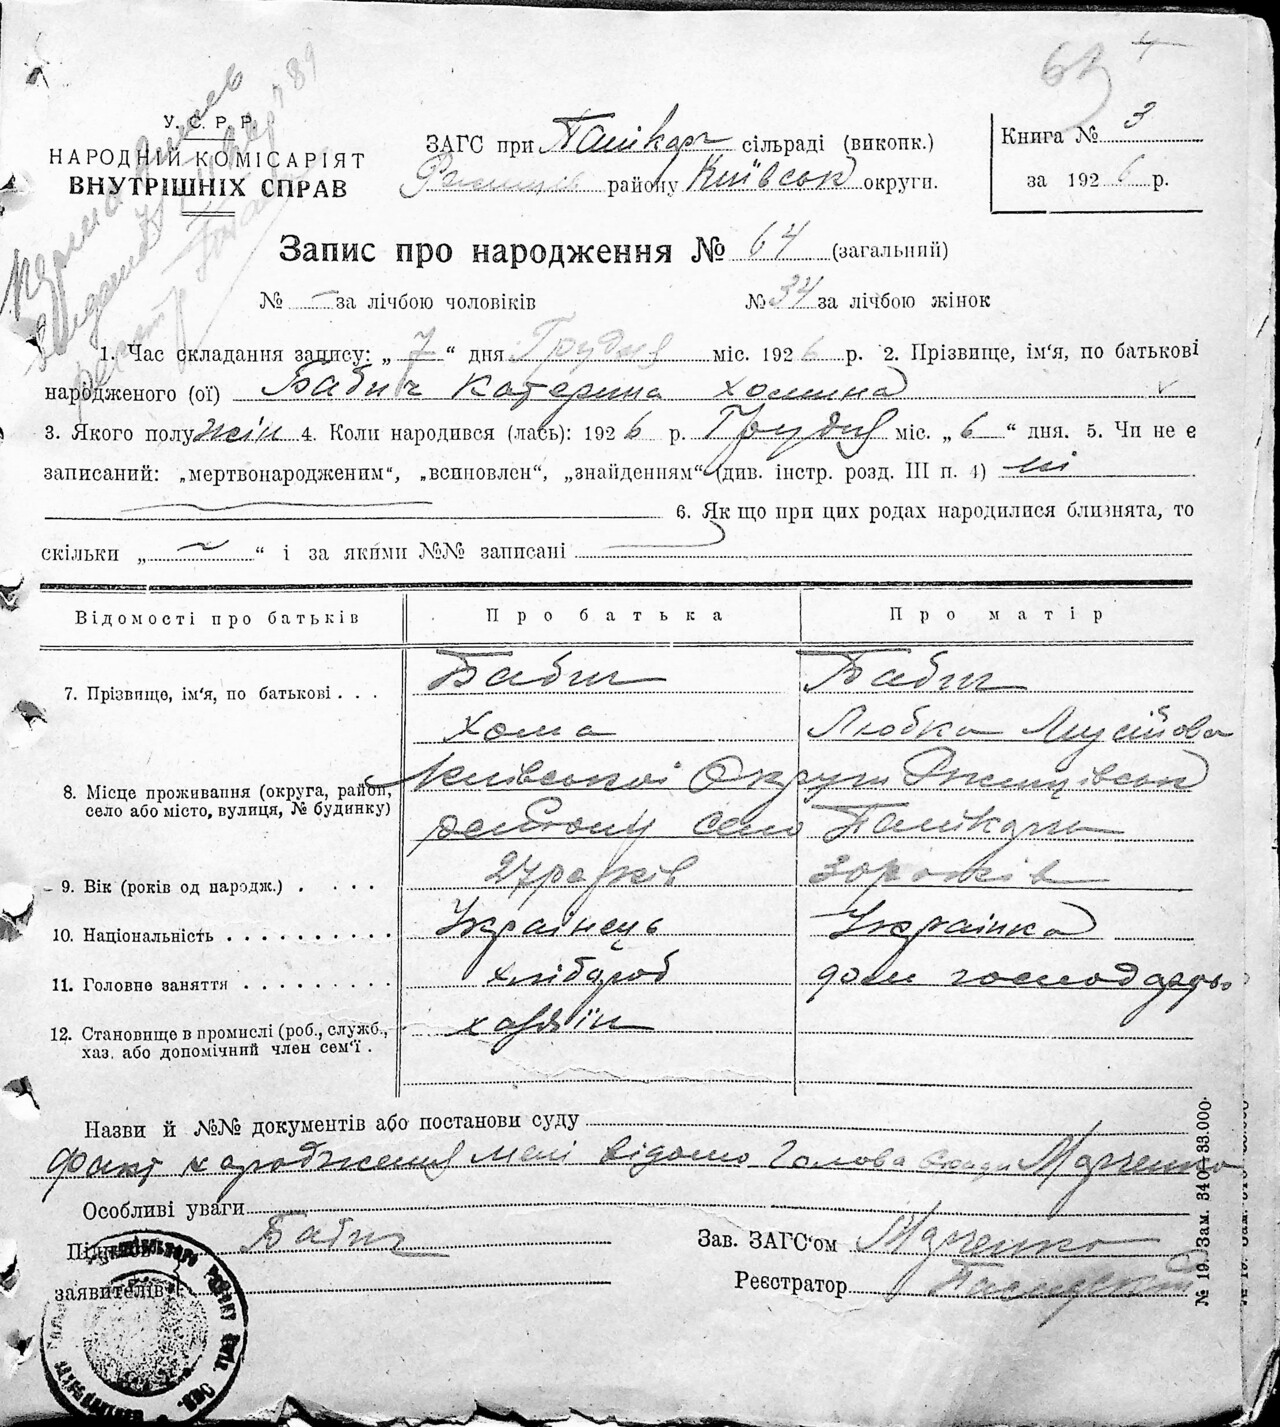 63
4
У. С. Р. Р.
НАРОДНІЙ КОМІСАРІЯТ
ВНУТРІШНІХ СПРАВ
ЗАГС при сільраді (викопк.)
району Київськ округи.
Книга № 3
за 1926 р.
Запис про народження № 64 (загальний)
№ — за лічбою чоловіків № 34 за лічбою жінок
1. Час складання запису: „ 7 “ дня Грудня міс. 1926 р. 2. Прізвище, ім‘я, по батькові
народженого (ої) Бабич Катерина Хомина
3. Якого полу жін 4. Коли народився (лась): 1926 р. Грудня міс. „ 6 “ дня. 5. Чи не є
записаний: „мертвонародженим“, „всиновлен“, „знайденням“ (див. інстр. розд. III п. 4) ні
6. Як що при цих родах народилися близнята, то
скільки „ — “ і за якими №№ записані
Відомості про батьків Про батька Про матір
7. Прізвище, ім‘я, по батькові . . . Бабич Бабич
Хома Любка Мусійова
8. Місце проживання (округа, район,
село або місто, вулиця, № будинку)
Київської Округи Ржищівськ
село
9. Вік (років од народж.) . . . . 27 років 30 років
10. Національність . . . . . . . . . . Українець Українка
11. Головне заняття . . . . . . . . . хлібороб дом господарь
12. Становище в промислі (роб., служб.,
хаз. або допомічний член сем‘ї .
хазяїн
Назви й №№ документів або постанови суду
Факт народження мені відомо Голова Марченко
Особливі уваги
Підписи Бабич
заявителів
Зав. ЗАГС‘ом Марченко
Реєстратор
№ 19. Зам. 340—33.000.